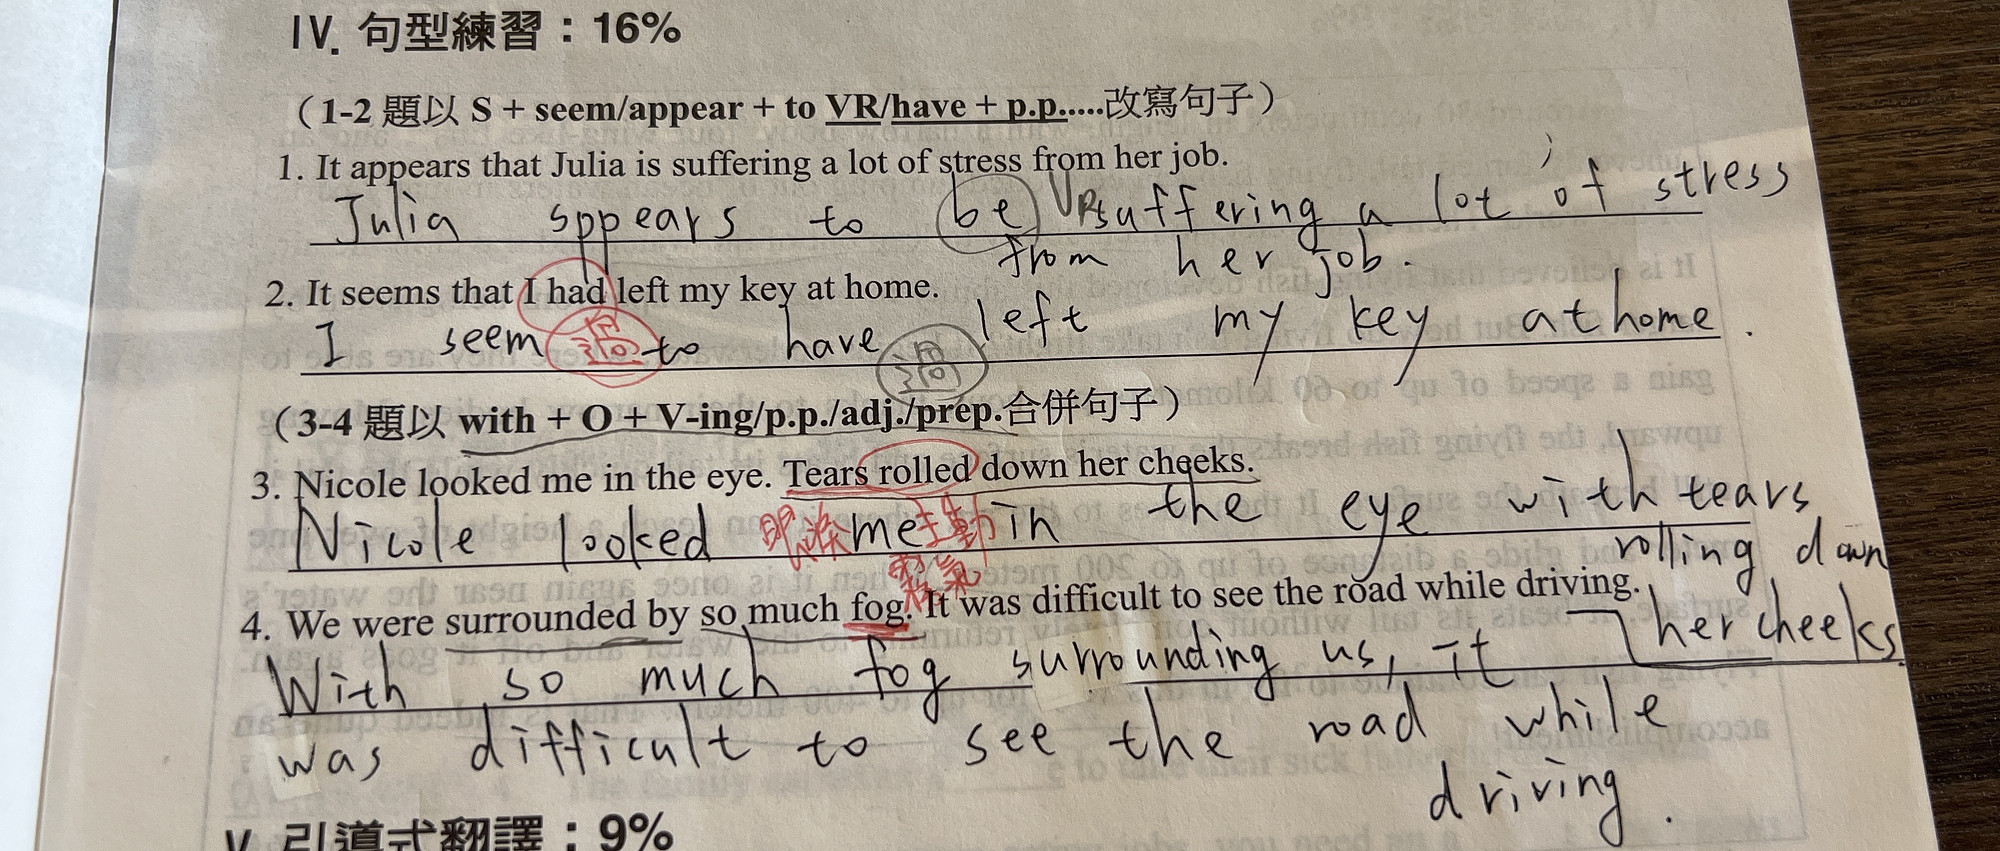 IV. 句型練習：16%
（1-2 題以 S + seem/appear + to VR/have + p.p.....改寫句子）
1. It appears that Julia is suffering a lot of stress from her job.
Julia sppears to be VR suffering a lot of stress
from her job.
2. It seems that I had left my key at home.
I seem 過 to have 過 left my key at home.
（3-4 題以 with + O + V-ing/p.p./adj./prep.合併句子）
3. Nicole looked me in the eye. Tears rolled down her cheeks.
Nicole looked 眼淚 me 主動 in the eye with tears
rolling down
霧氣
4. We were surrounded by so much fog. It was difficult to see the road while driving.
her cheeks.
With so much fog surrounding us, it
was difficult to see the road while
driving.
V. 引導式翻譯：9%